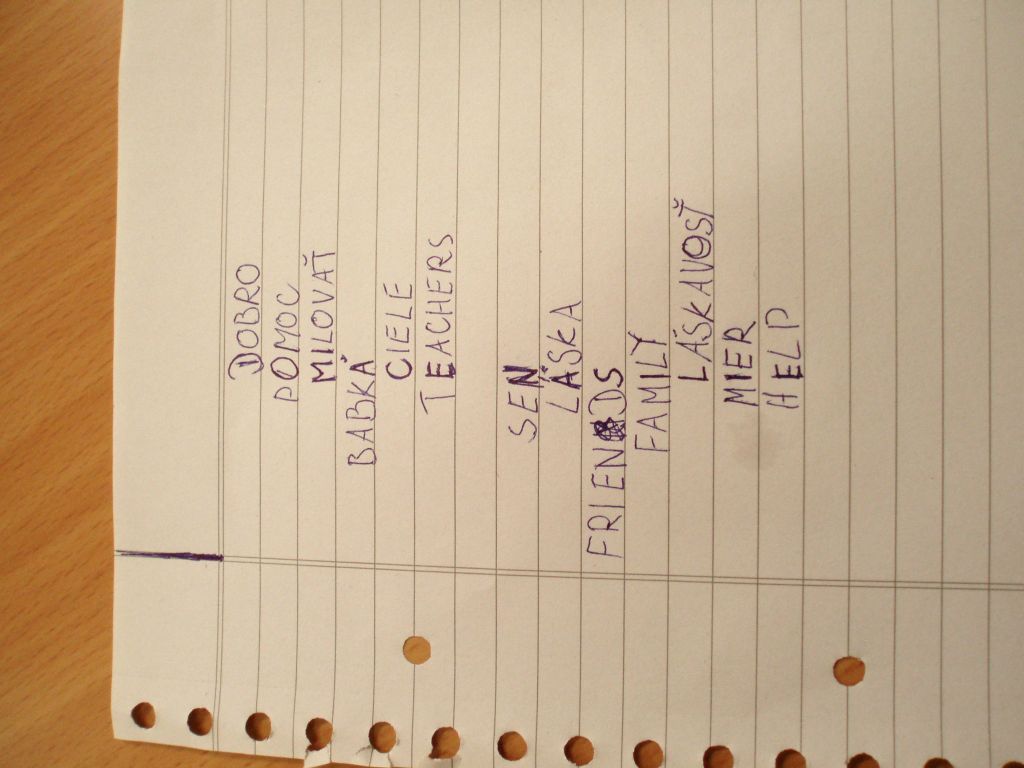 DOBRO
POMOC
MILOVAŤ
BABKA
CIELE
TEACHERS
SEN
LÁSKA
FRIENDS
FAMILY
LÁSKAVOSŤ
MIER
HELP